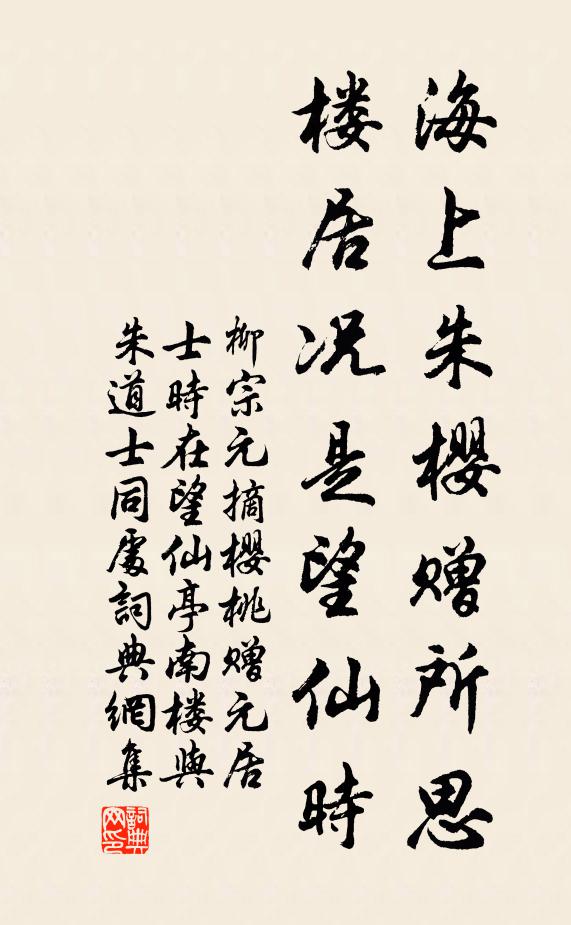 海上朱櫻赠所思
楼居况是望仙時
柳宗元摘櫻桃赠元居
士時在望仙亭南楼與
朱道士同處詞典網集
詞典
网印